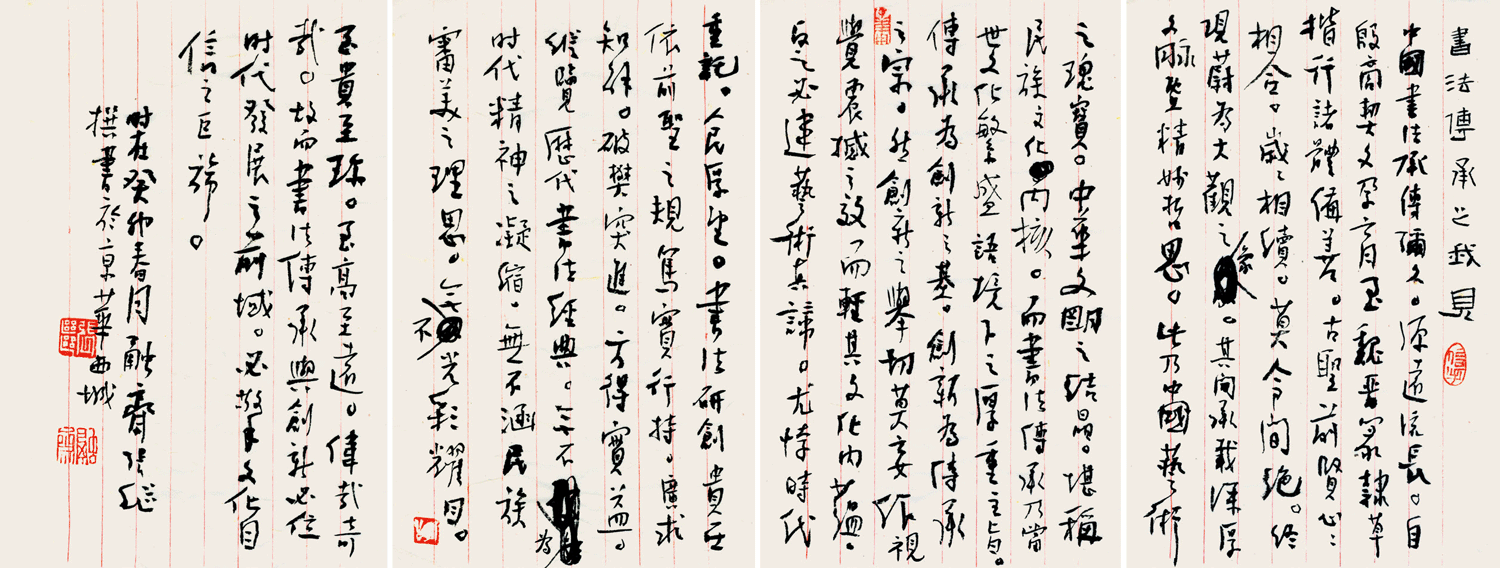 書法傳承之我見
中國書法承傳彌久。源遠流長。自
殷商契文孕育。至魏晋篆隸草
楷行諸體備善。古聖前賢心心
相合。歲歲相續。莫令间絶。终
現蔚为大觀之像。其间承载深厚
文脉暨精妙哲思。此乃中國藝術
之瑰寶。中華文明之结晶。堪稱
民族文化内核。而書法傳承乃當
世文化繁盛語境下之厚重主旨。
傳承为創新之基。創新为传承
之宗。然創新之舉切莫妄作視
覺震撼之效而輕其文化内蕴。
反之必違藝術真諦。尤悖時代
重託。人民厚望。書法研創貴在
依前聖之規篤實行持。廣求
知解。破樊突進。方得實益。
縱覽歷代書法经典。無不为
时代精神之凝縮。無不涵民族
審美之理思。無不光彩耀目。
至貴至珍。至高至遠。偉哉奇
哉。故而書法傳承與創新必位
时代發展之前域。必擎文化自
信之巨旆。
时在癸卯春月融齋张继
撰書於京華西城